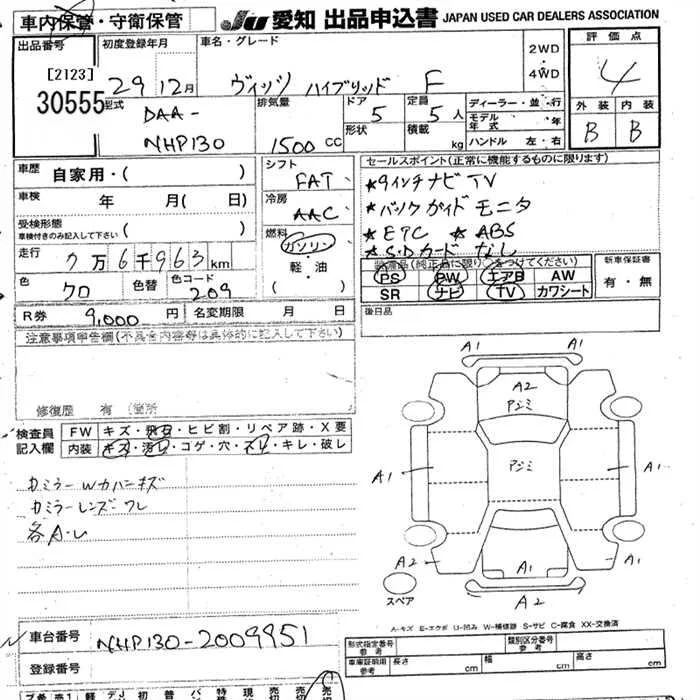 車内保管・守衛保管
JU 愛知 出品申込書 JAPAN USED CAR DEALERS ASSOCIATION
出品番号 初度登録年月 車名・グレード 2WD・4WD 評価点
[2123]
30555
29年12月 ヴィッツ ハイブリッド F 4
型式 DAA-NHP130
排気量 1500cc
ドア 5 形状
定員 5人 積載 kg
ディーラー・並・行
モデル年式 年
ハンドル 左・右
外装 内装
B B
車歴 自家用・( )
車検 年 月(日)
受検形態 車検付きのみ記入して下さい ( )
走行 7万6千963km
色 クロ 色替 色コード 209
R券 9,000円 名変期限 月 日
シフト FAT
冷房 AAC
燃料 ガソリン・軽・油・( )
セールスポイント(正常に機能するものに限ります)
★9インチナビ TV
★バックガイドモニタ
★ETC ★ABS
★S.Dカード なし
装備品(純正品に限り○をつけてください)
PS PW エアB AW
SR ナビ TV カワシート
新車保証書
有・無
後日品
注意事項申告欄(不具合内容等は具体的に記入して下さい)
修復歴 有 (箇所
検査員記入欄
FW キズ・飛石・ヒビ割・リペア跡・X要
内装 キズ・汚レ・コゲ・穴・スレ・キレ・破レ
カミラーWカバーキズ
カミラーレンズワレ
各A・U
A1 A1
A2
アジミ
アジミ
A1 A1
A2 A1 A1
A2
スペア
A-キズ E-エクボ U-凹み W-補修跡 S-サビ C-腐食 XX-交換済
車台番号 NHP130-2009951
登録番号
形式指定番号 参考
類別区分番号 参考
車庫証明用参考 長さ cm 幅 cm 高さ cm